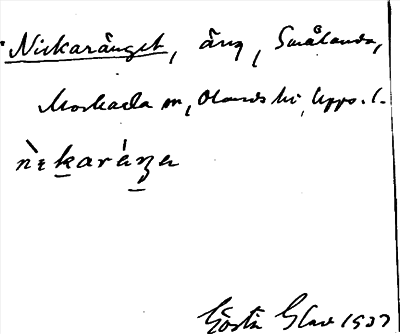 Nickaränget, äng, Smålanda,
Morkarla sn, Olands hd, Upps. l.
nekaráŋa
Gösta Glav 1937